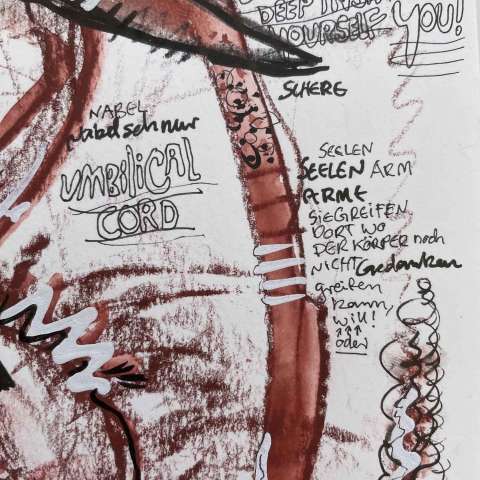 DEEP INSIDE
YOURSELF YOU!
SCHERE
NABEL
Nabelschnur
UMBILICAL
CORD
SEELEN
SEELEN ARM
ARME
SIE GREIFEN
DORT WO
DER KÖRPER noch
NICHT Gedanken
greifen
kann,
will!
oder